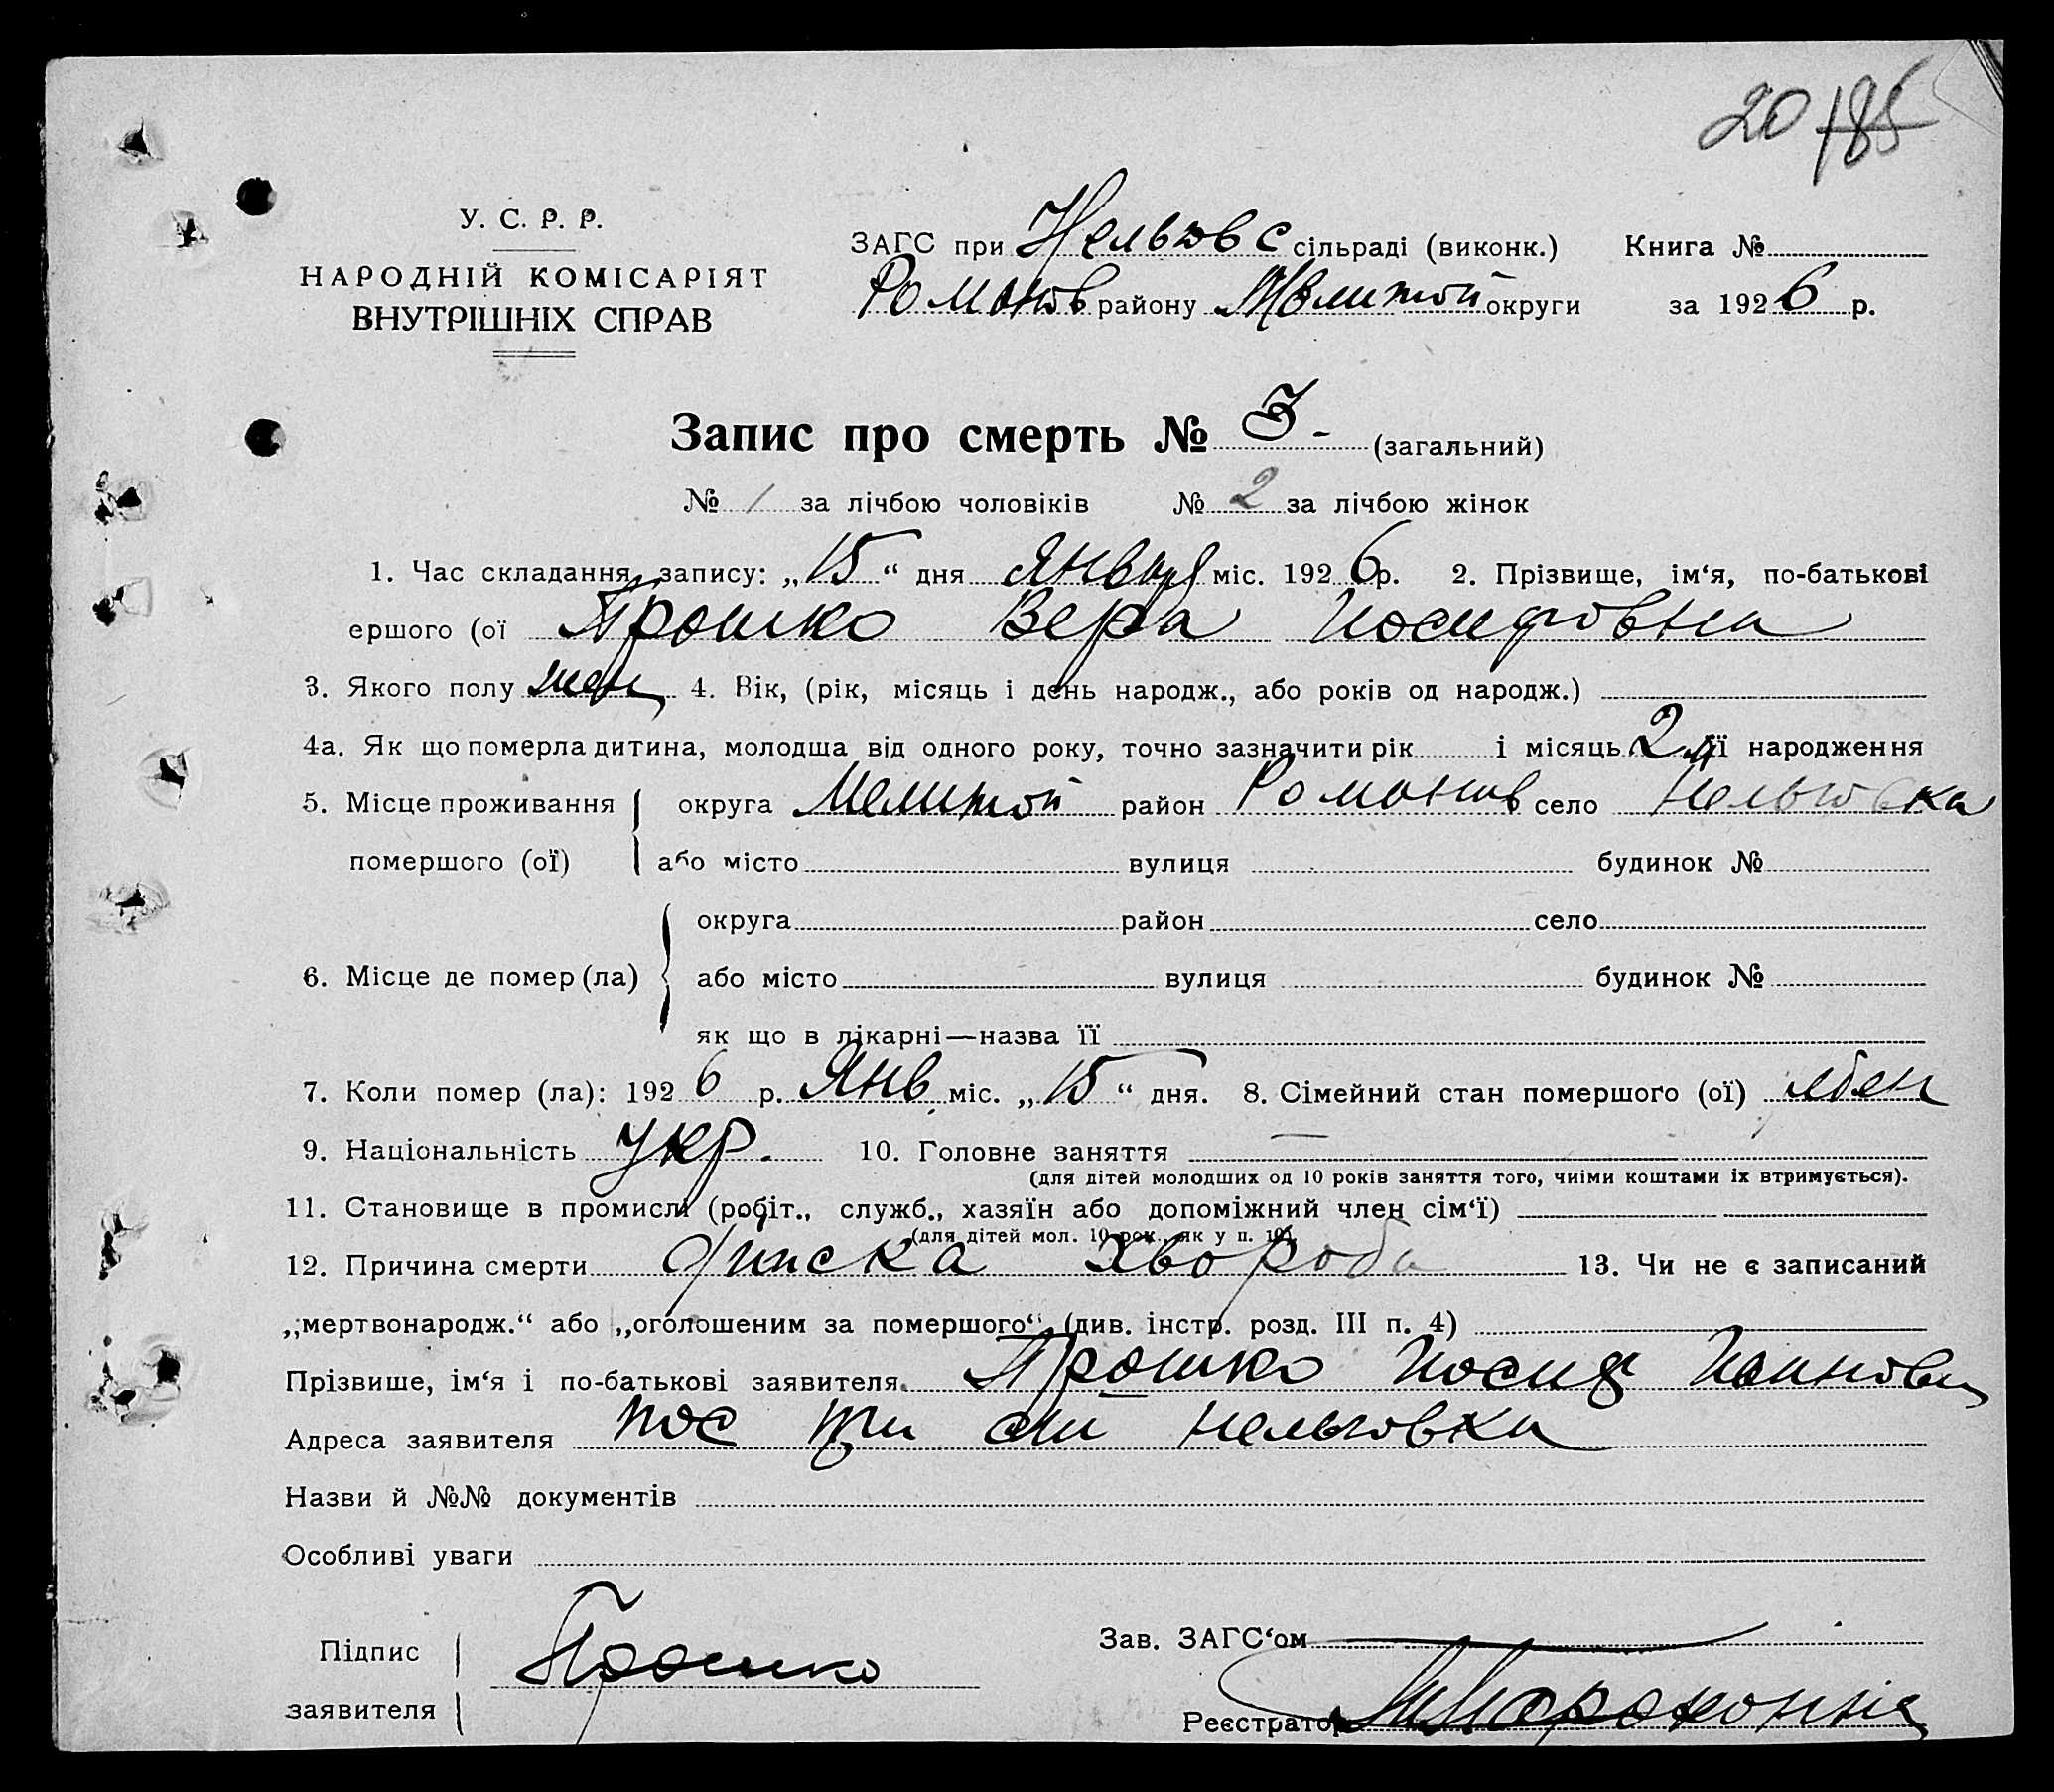 20 185
У. С. Р. Р.
НАРОДНІЙ КОМІСАРІЯТ
ВНУТРІШНІХ СПРАВ
ЗАГС при Нельговс сільраді (виконк.) Книга №
Романов району Мелитоп округи за 1926 р.
Запис про смерть № 3 - (загальний)
№ 1 за лічбою чоловіків № 2 за лічбою жінок
1. Час складання запису: „15“ дня Января міс. 1926 р. 2. Прізвище, ім‘я, по-батькові
ершого (ої Прошко Вера Иосифовна
3. Якого полу жен 4. Вік, (рік, місяць і день народж., або років од народж.)
4а. Як що померла дитина, молодша від одного року, точно зазначити рік і місяць 2 її народження
5. Місце проживання округа Мелитоп район Романов село Нельговка
помершого (ої) або місто вулиця будинок №
округа район село
6. Місце де помер (ла) або місто вулиця будинок №
як що в лікарні—назва її
7. Коли помер (ла): 1926 р. Янв міс. „15“ дня. 8. Сімейний стан помершого (ої)
9. Національність укр. 10. Головне заняття —
(для дітей молодших од 10 років заняття того, чиїми коштами їх втримується).
11. Становище в промислі (робіт., служб., хазяїн або допоміжний член сім‘ї)
(для дітей мол. 10 рок., як у п. 10).
12. Причина смерти хвороба 13. Чи не є записаний
„мертвонародж.“ або „оголошеним за помершого“ (див. інстр. розд. III п. 4)
Прізвише, ім‘я і по-батькові заявителя Прошко Иосиф
Адреса заявителя Нельговка
Назви й №№ документів
Особливі уваги
Підпис
заявителя Прошко
Зав. ЗАГС‘ом
Реєстратор